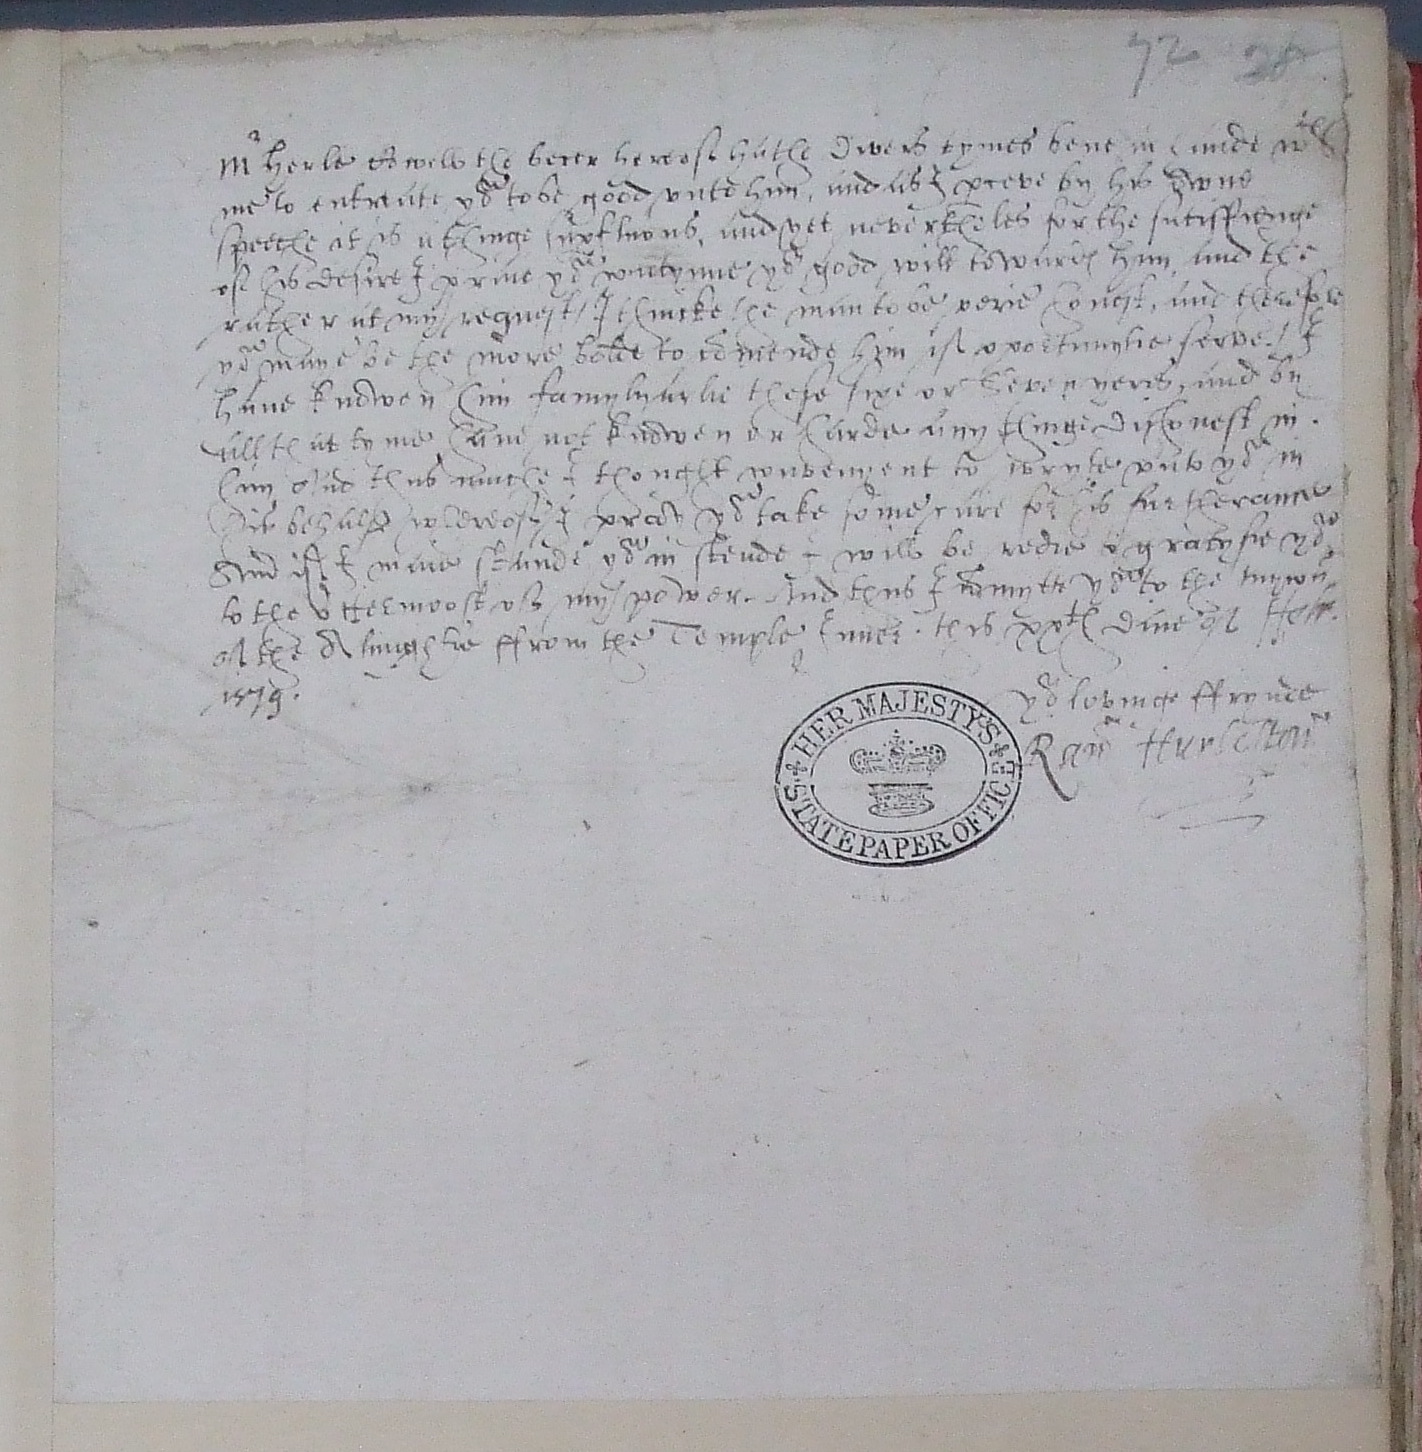 72 28
Mr Herle Eswell the berer hereof hathe Divers tymes bene in hande wth
me to entreate yow to be good unto him, and as I preve by his owne
speeche it is a thinge supfluous, and yet neverthelesse for the satiffienge
of his desire I praie yow contynue yor good will towards him, and the
rather at my request / I thincke the man to be verie honest, and therefore
yow maye be the more bolde to comende him if oportunytie serve. / I
have knowen him famylyarlie these sixe or Seven yeres, and by
all that tyme have not knowen or harde any thinge dishonest in
him And thus muche I thought convenyent to wryte unto yow in
his behalf, whereof I praie yow take some care for his furtherance
And if I maie stande yow in steade I will be redie to gratyfie yow
to the uttermoost of my power. And thus I comytte yow to the
of the Almightie ffrom the Temple Inner this xxth daie of
1579.
yor lovinge ffrynde
Ran Hurleston
HER MAJESTY'S
STATE PAPER OFFICE